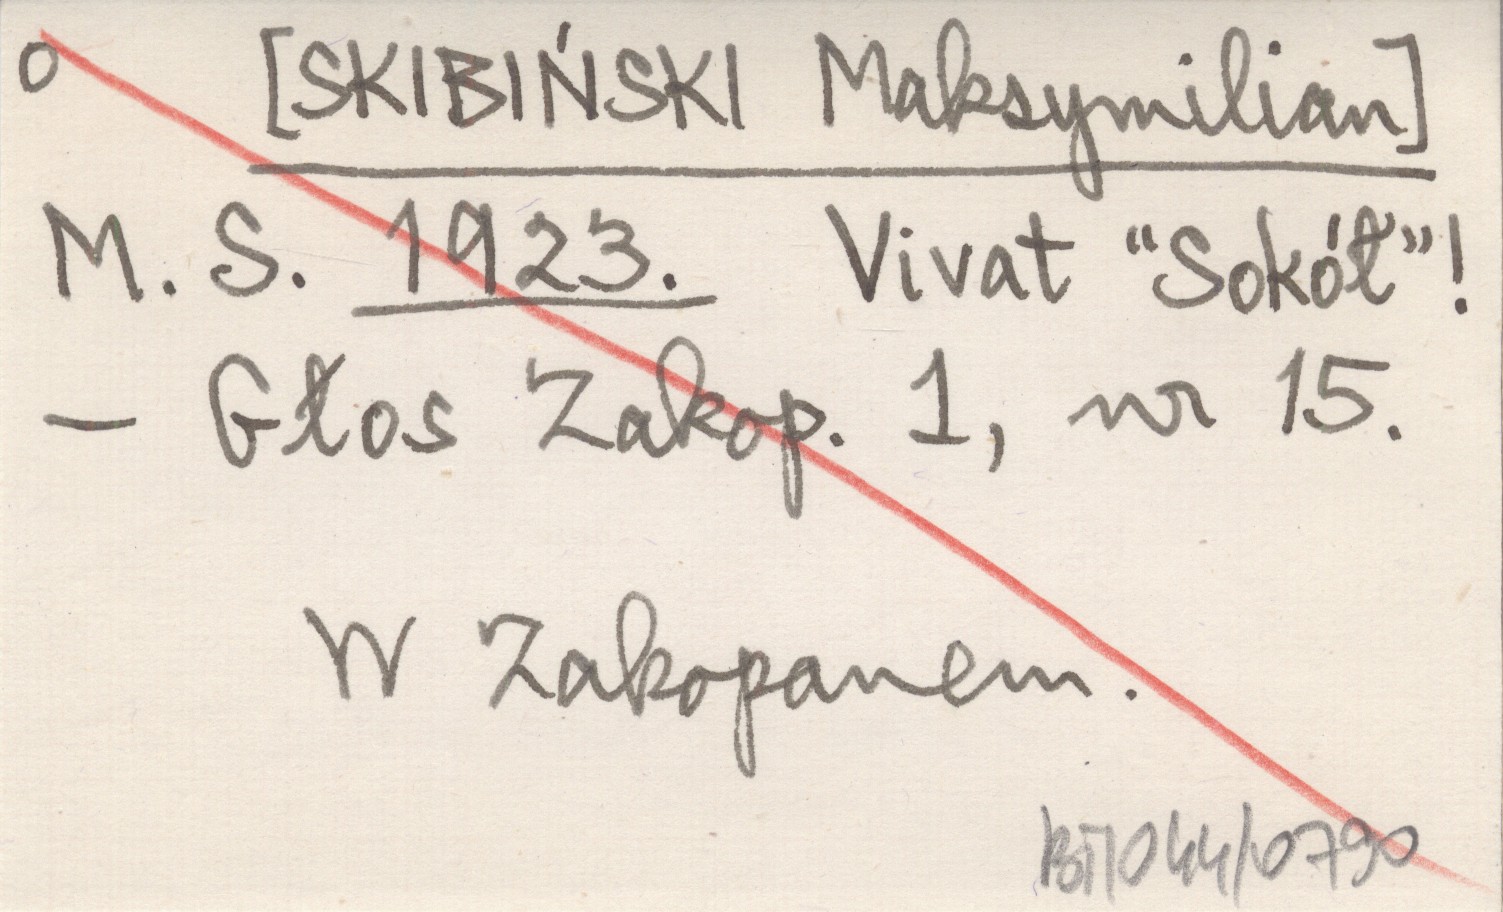 o [SKIBIŃSKI Maksymilian]
M. S. 1923. Vivat “Sokół”!
— Głos Zakop. 1, nr 15.
W Zakopanem.
BT/044/0790